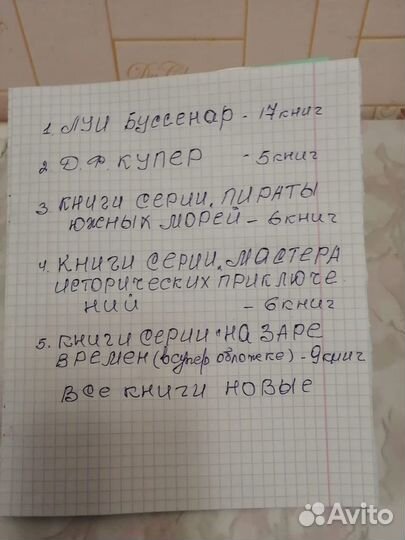 1. ЛУИ БУССЕНАР - 17 книг
2. Д.Ф. КУПЕР - 5 книг
3. КНИГИ СЕРИИ „ПИРАТЫ
ЮЖНЫХ МОРЕЙ - 6 книг
4. КНИГИ СЕРИИ „МАСТЕРА
ИСТОРИЧЕСКИХ ПРИКЛЮЧЕ
НИЙ - 6 книг
5. КНИГИ СЕРИИ "НА ЗАРЕ
ВРЕМЕН (в супер обложке) - 9 книг
ВСЕ КНИГИ НОВЫЕ
Avito